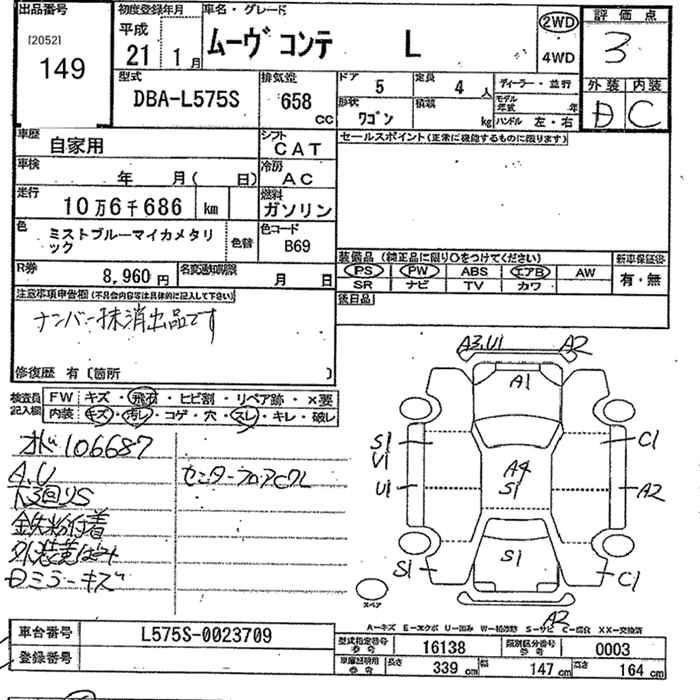 出品番号 初度登録年月 車名・グレード 2WD 評価点
[2052] 平成 ムーヴコンテ L 4WD 3
149 21年 1月
型式 排気量 ドア 5 定員 4人 ディーラー・並行 外装 内装
DBA-L575S 658cc 形状 ワゴン 積載 kg モデル年式 年 D C
ハンドル 左・右
車歴 自家用 シフト CAT セールスポイント(正常に機能するものに限ります)
車検 年 月( 日) 冷房 AC
走行 10万6千686 km 燃料 ガソリン
色 ミストブルーマイカメタリック 色替 色コード B69
装備品(純正品に限り○をつけてください) 新車保証書
R券 8,960円 名変通知期限 月 日 PS PW ABS エアB AW 有・無
SR ナビ TV カワ
注意事項申告欄(不具合内容等は具体的に記入して下さい) 後日品
ナンバー抹消出品です
修復歴 有〔箇所 〕
A3.U1 A2
A1
検査員記入欄 FW キズ・飛石・ヒビ割・リペア跡・×要
内装 キズ・汚レ・コゲ・穴・スレ・キレ・破レ
オド106687 S1 C1
A.U センターフロアC穴 V1 A4
U1 S1 A2
鉄粉付着
外装黄ばみ S1
ミラーキズ S1 C1
スペア A2
A－キズ E－エクボ U－凹み W－補修跡 S－サビ C－腐食 XX－交換済
車台番号 L575S-0023709 型式指定番号 参考 16138 類別区分番号 参考 0003
登録番号 車庫証明用 参考 長さ 339cm 幅 147cm 高さ 164cm